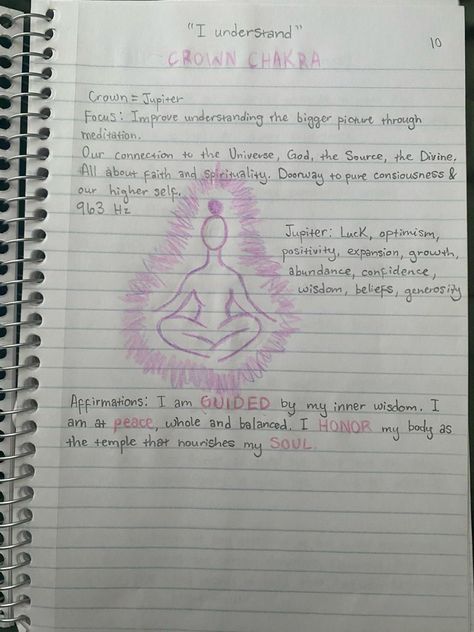 "I understand"
10
CROWN CHAKRA
Crown = Jupiter
Focus: Improve understanding the bigger picture through
meditation.
Our connection to the Universe, God, the Source, the Divine.
All about faith and spirituality. Doorway to pure consiousness &
our higher self.
963 Hz
Jupiter: Luck, optimism,
positivity, expansion, growth,
abundance, confidence,
wisdom, beliefs, generosity
Affirmations: I am GUIDED by my inner wisdom. I
am at peace, whole and balanced. I HONOR my body as
the temple that nourishes my SOUL.